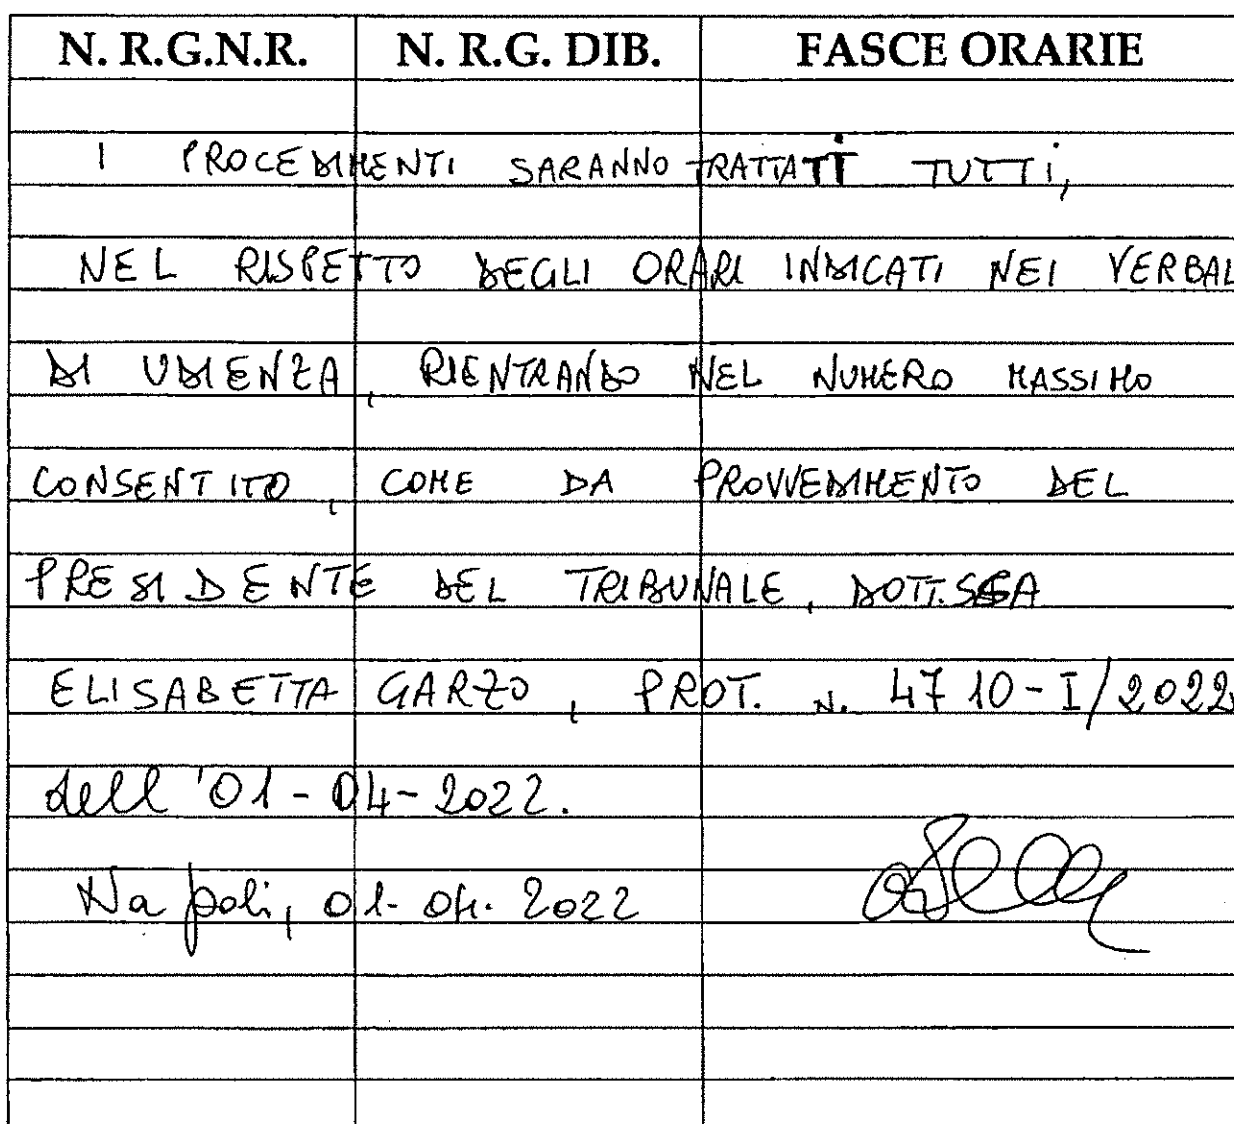 N. R.G.N.R. N. R.G. DIB. FASCE ORARIE
I PROCEDIMENTI SARANNO TRATTATI TUTTI,
NEL RISPETTO DEGLI ORARI INDICATI NEI VERBAL
DI UDIENZA, RIENTRANDO NEL NUMERO MASSIMO
CONSENTITO, COME DA PROVVEDIMENTO DEL
PRESIDENTE DEL TRIBUNALE, DOTT.SSA
ELISABETTA GARZO, PROT. N. 4710-I/2022
dell'01-04-2022.
Napoli, 01-04-2022